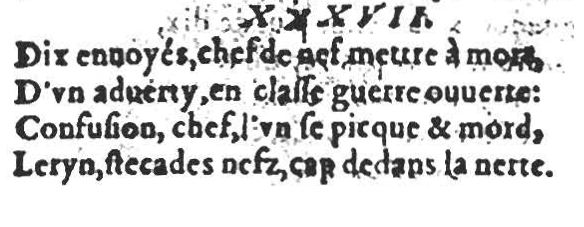 XXXVII.
Dix enuoyés, chef de nef mettre à mort,
D'vn aduerty, en claſſe guerre ouuerte:
Confuſion, chef, l'vn ſe picque & mord,
Leryn, ſtecades nefz, cap dedans la nerte.